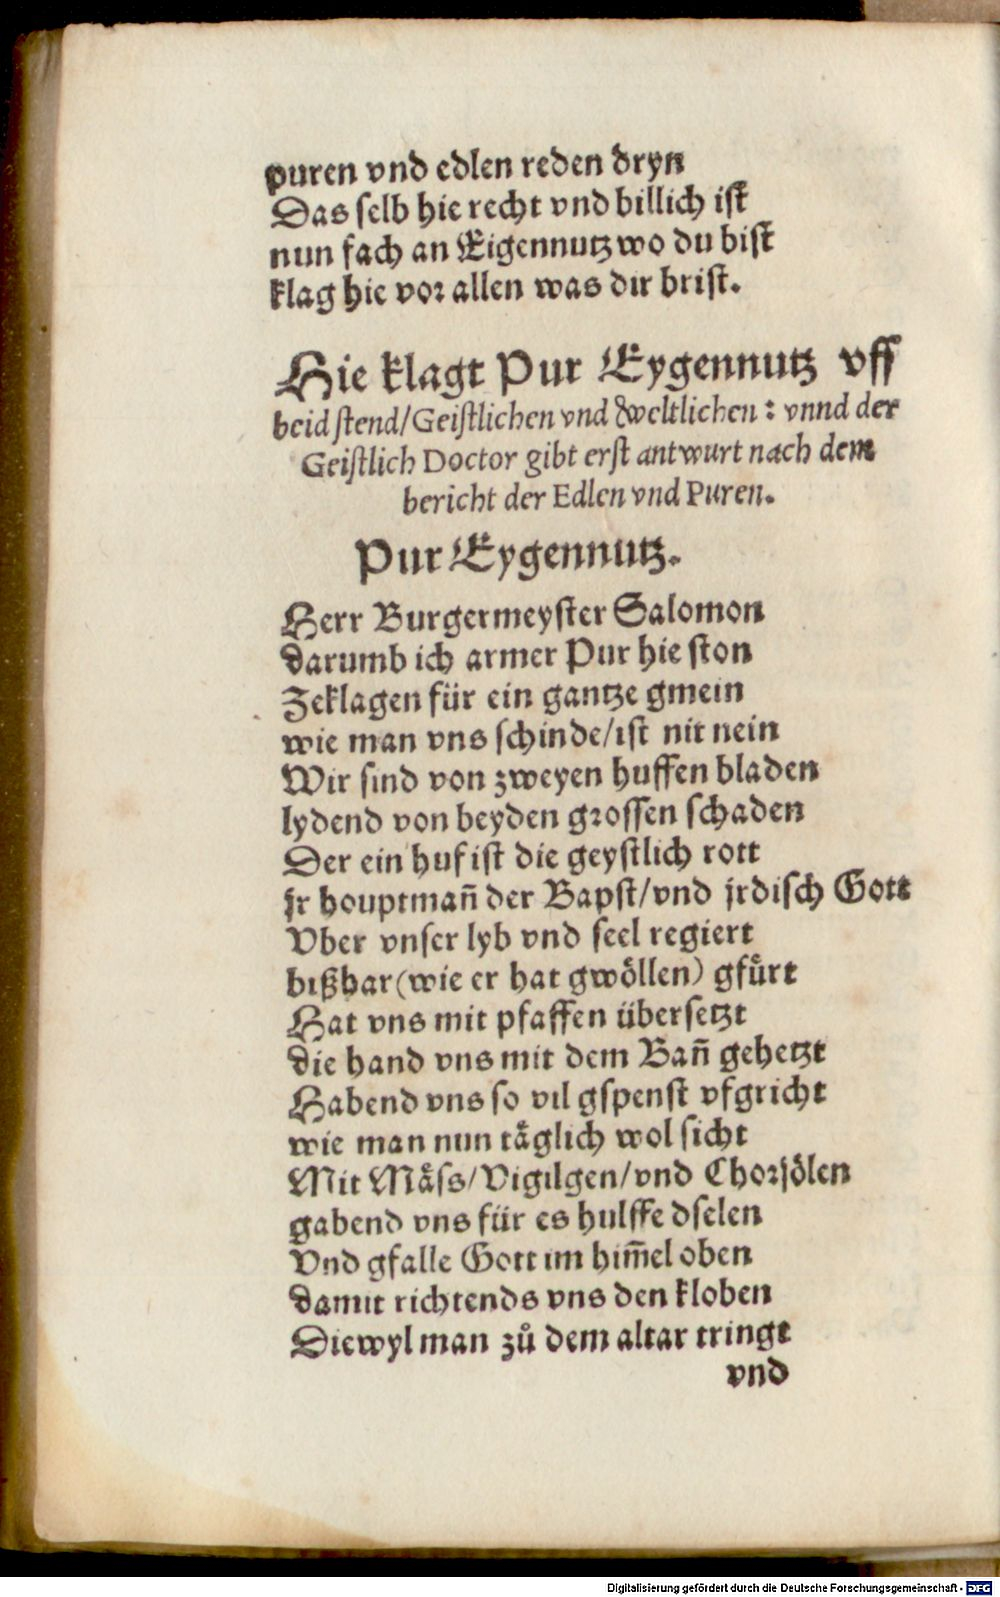 puren vnd edlen reden dryn
Das selb hie recht vnd billich ist
nun fach an Eigennutz wo du bist
klag hie vor allen was dir brist.
Hie klagt Pur Eygennutz vff
beid stend/Geistlichen vnd Weltlichen: vnnd der
Geistlich Doctor gibt erst antwurt nach dem
bericht der Edlen vnd Puren.
Pur Eygennutz.
Herr Burgermeyster Salomon
darumb ich armer Pur hie ston
Zeklagen für ein gantze gmein
wie man vns schinde/ist nit nein
Wir sind von zweyen huffen bladen
lydend von beyden grossen schaden
Der ein huf ist die geystlich rott
jr houptmañ der Bapst/vnd jrdisch Gott
Vber vnser lyb vnd seel regiert
bißhar (wie er hat gwöllen) gfürt
Hat vns mit pfaffen übersetzt
die hand vns mit dem Bañ gehetzt
Habend vns so vil gspenst vfgricht
wie man nun täglich wol sicht
Mit Mäss/Vigilgen/vnd Chorjölen
gabend vns für es hulffe dselen
Vnd gfalle Gott im him̃el oben
damit richtends vns den kloben
Diewyl man zů dem altar tringt
vnd
Digitalisierung gefördert durch die Deutsche Forschungsgemeinschaft - DFG